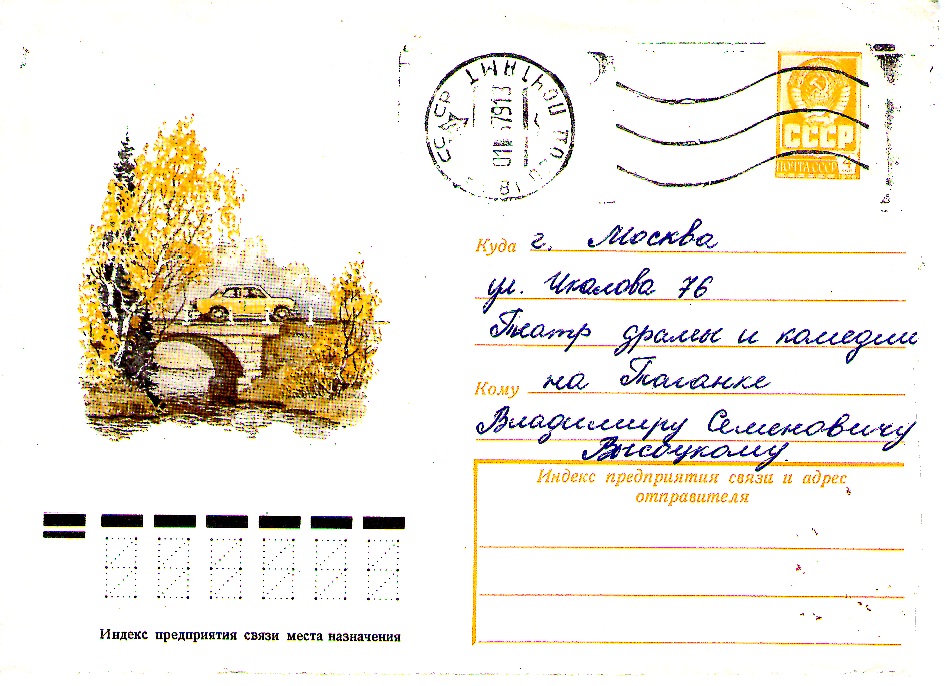 СССР
ПОЧТА СССР
4
Куда г. Москва
ул. Чкалова 76
Театр драмы и комедии
Кому на Таганке
Владимиру Семеновичу
Высоцкому.
Индекс предприятия связи и адрес
отправителя
Индекс предприятия связи места назначения